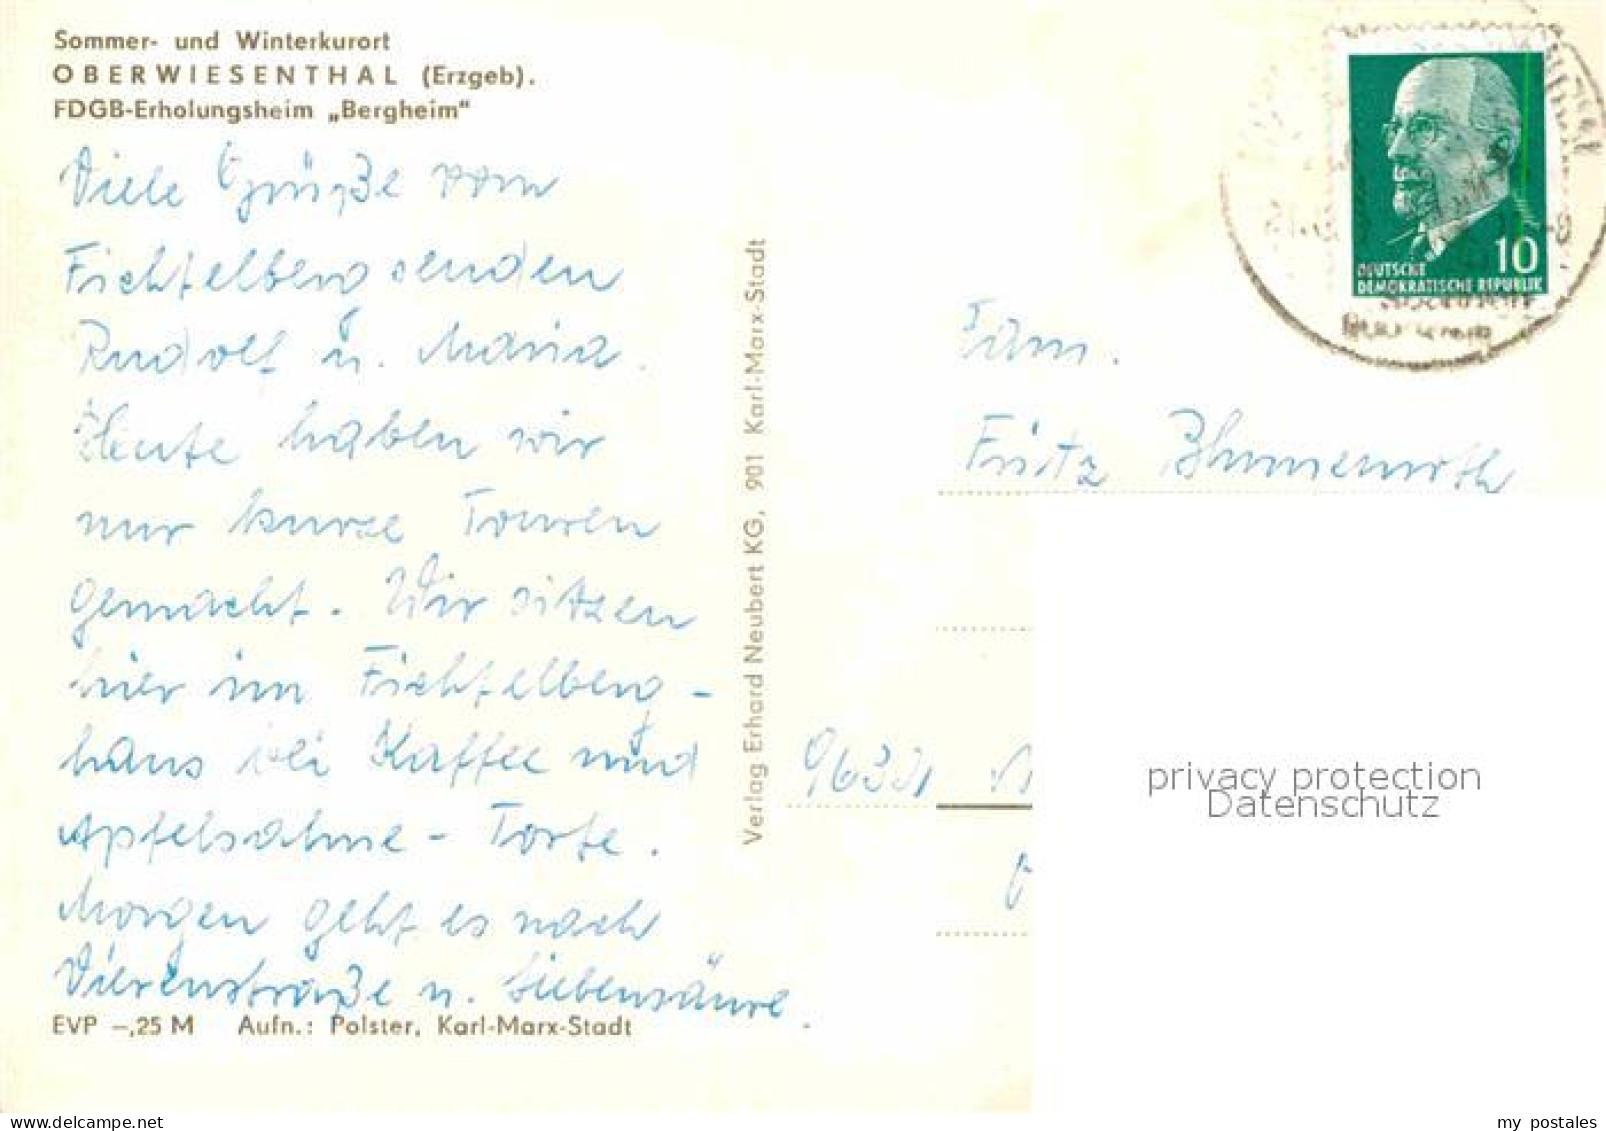 Sommer- und Winterkurort
OBERWIESENTHAL (Erzgeb).
FDGB-Erholungsheim „Bergheim“
Viele Grüße vom
Fichtelberg senden
Rudolf u. Maria.
Heute haben wir
nur kurze Touren
gemacht. Wir sitzen
hier im Fichtelberg-
haus bei Kaffee und
Apfelsahne-Torte.
Morgen geht es nach
u.
EVP –,25 M Aufn.: Polster, Karl-Marx-Stadt
Verlag Erhard Neubert KG, 901 Karl-Marx-Stadt
10
DEUTSCHE
DEMOKRATISCHE REPUBLIK
Fam.
Fritz
privacy protection
Datenschutz
my postales